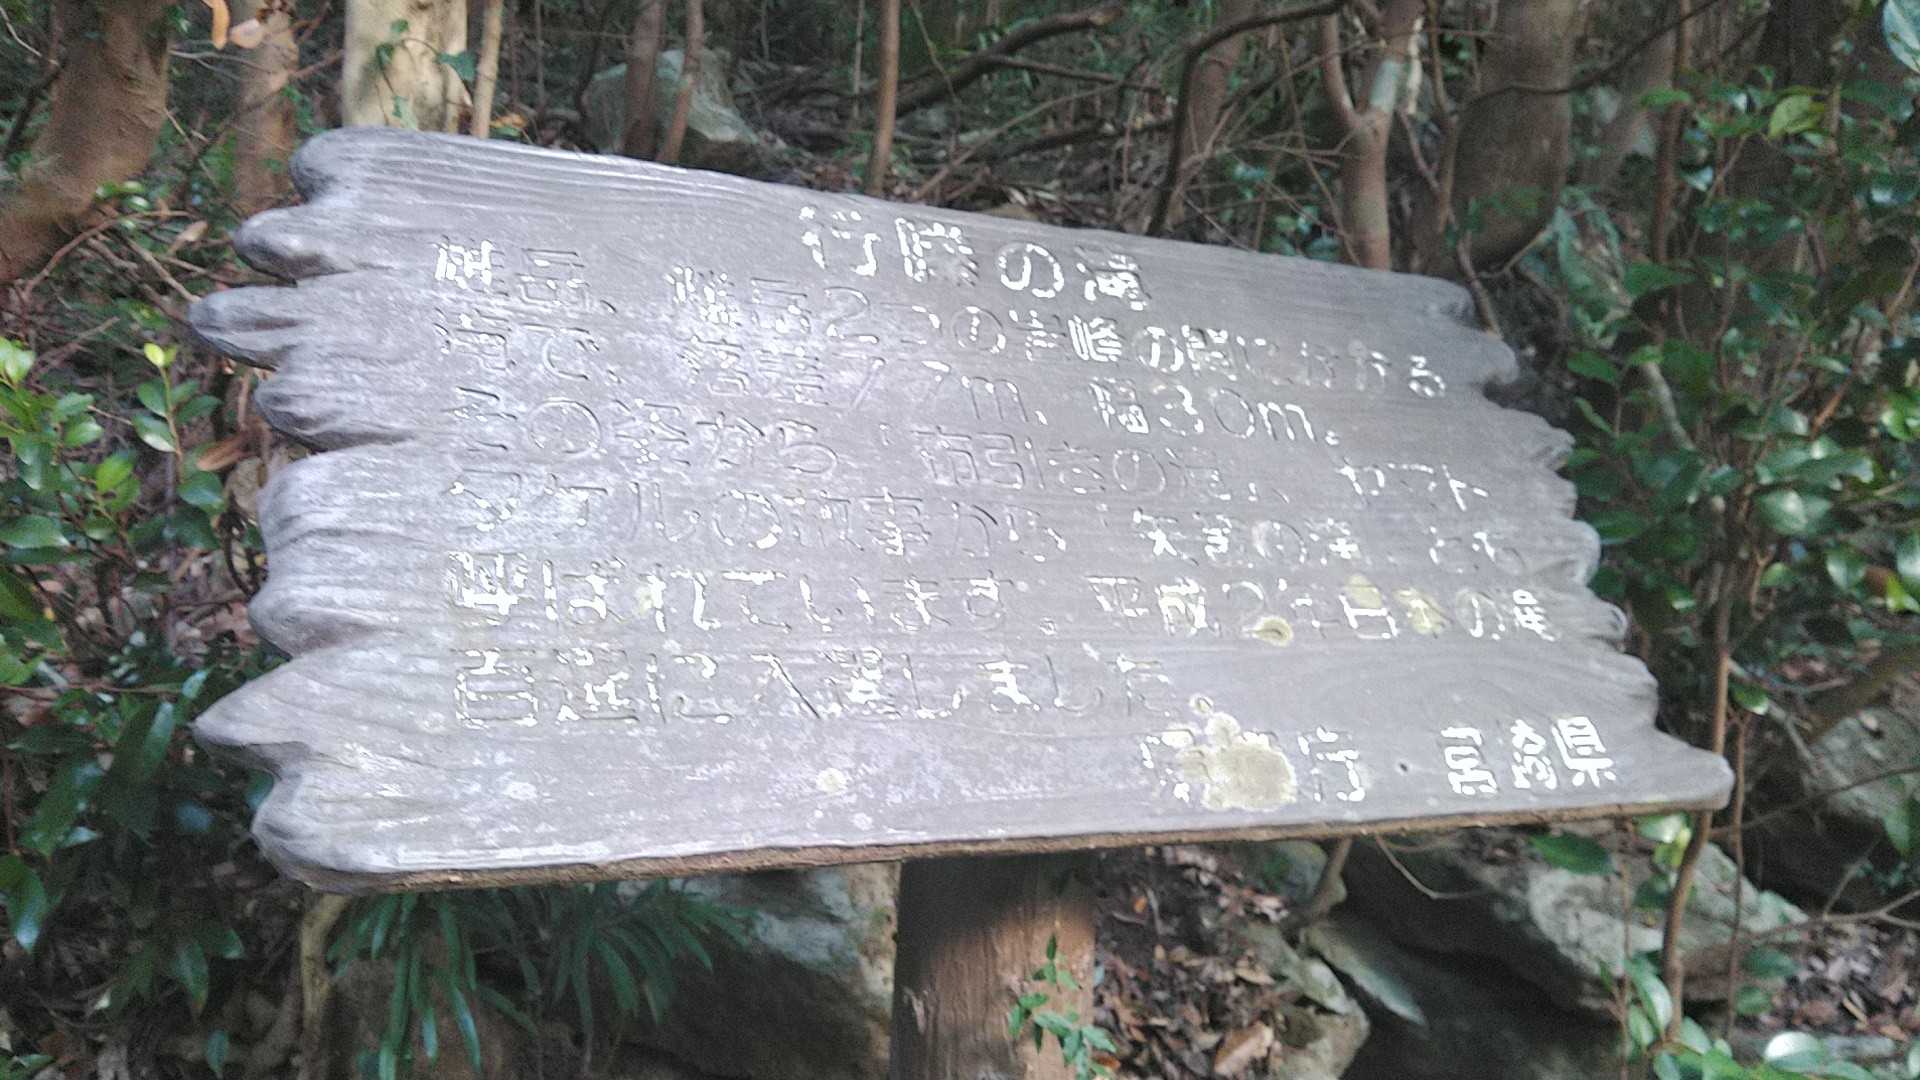 行縢の滝
雄岳、雌岳2つの岩峰の間にかかる
滝で、落差77m、幅30m。
その姿から「布引きの滝」、ヤマト
タケルの故事から「矢筈の滝」とも
呼ばれています。平成2年日本の滝
百選に入選しました。
行 宮崎県